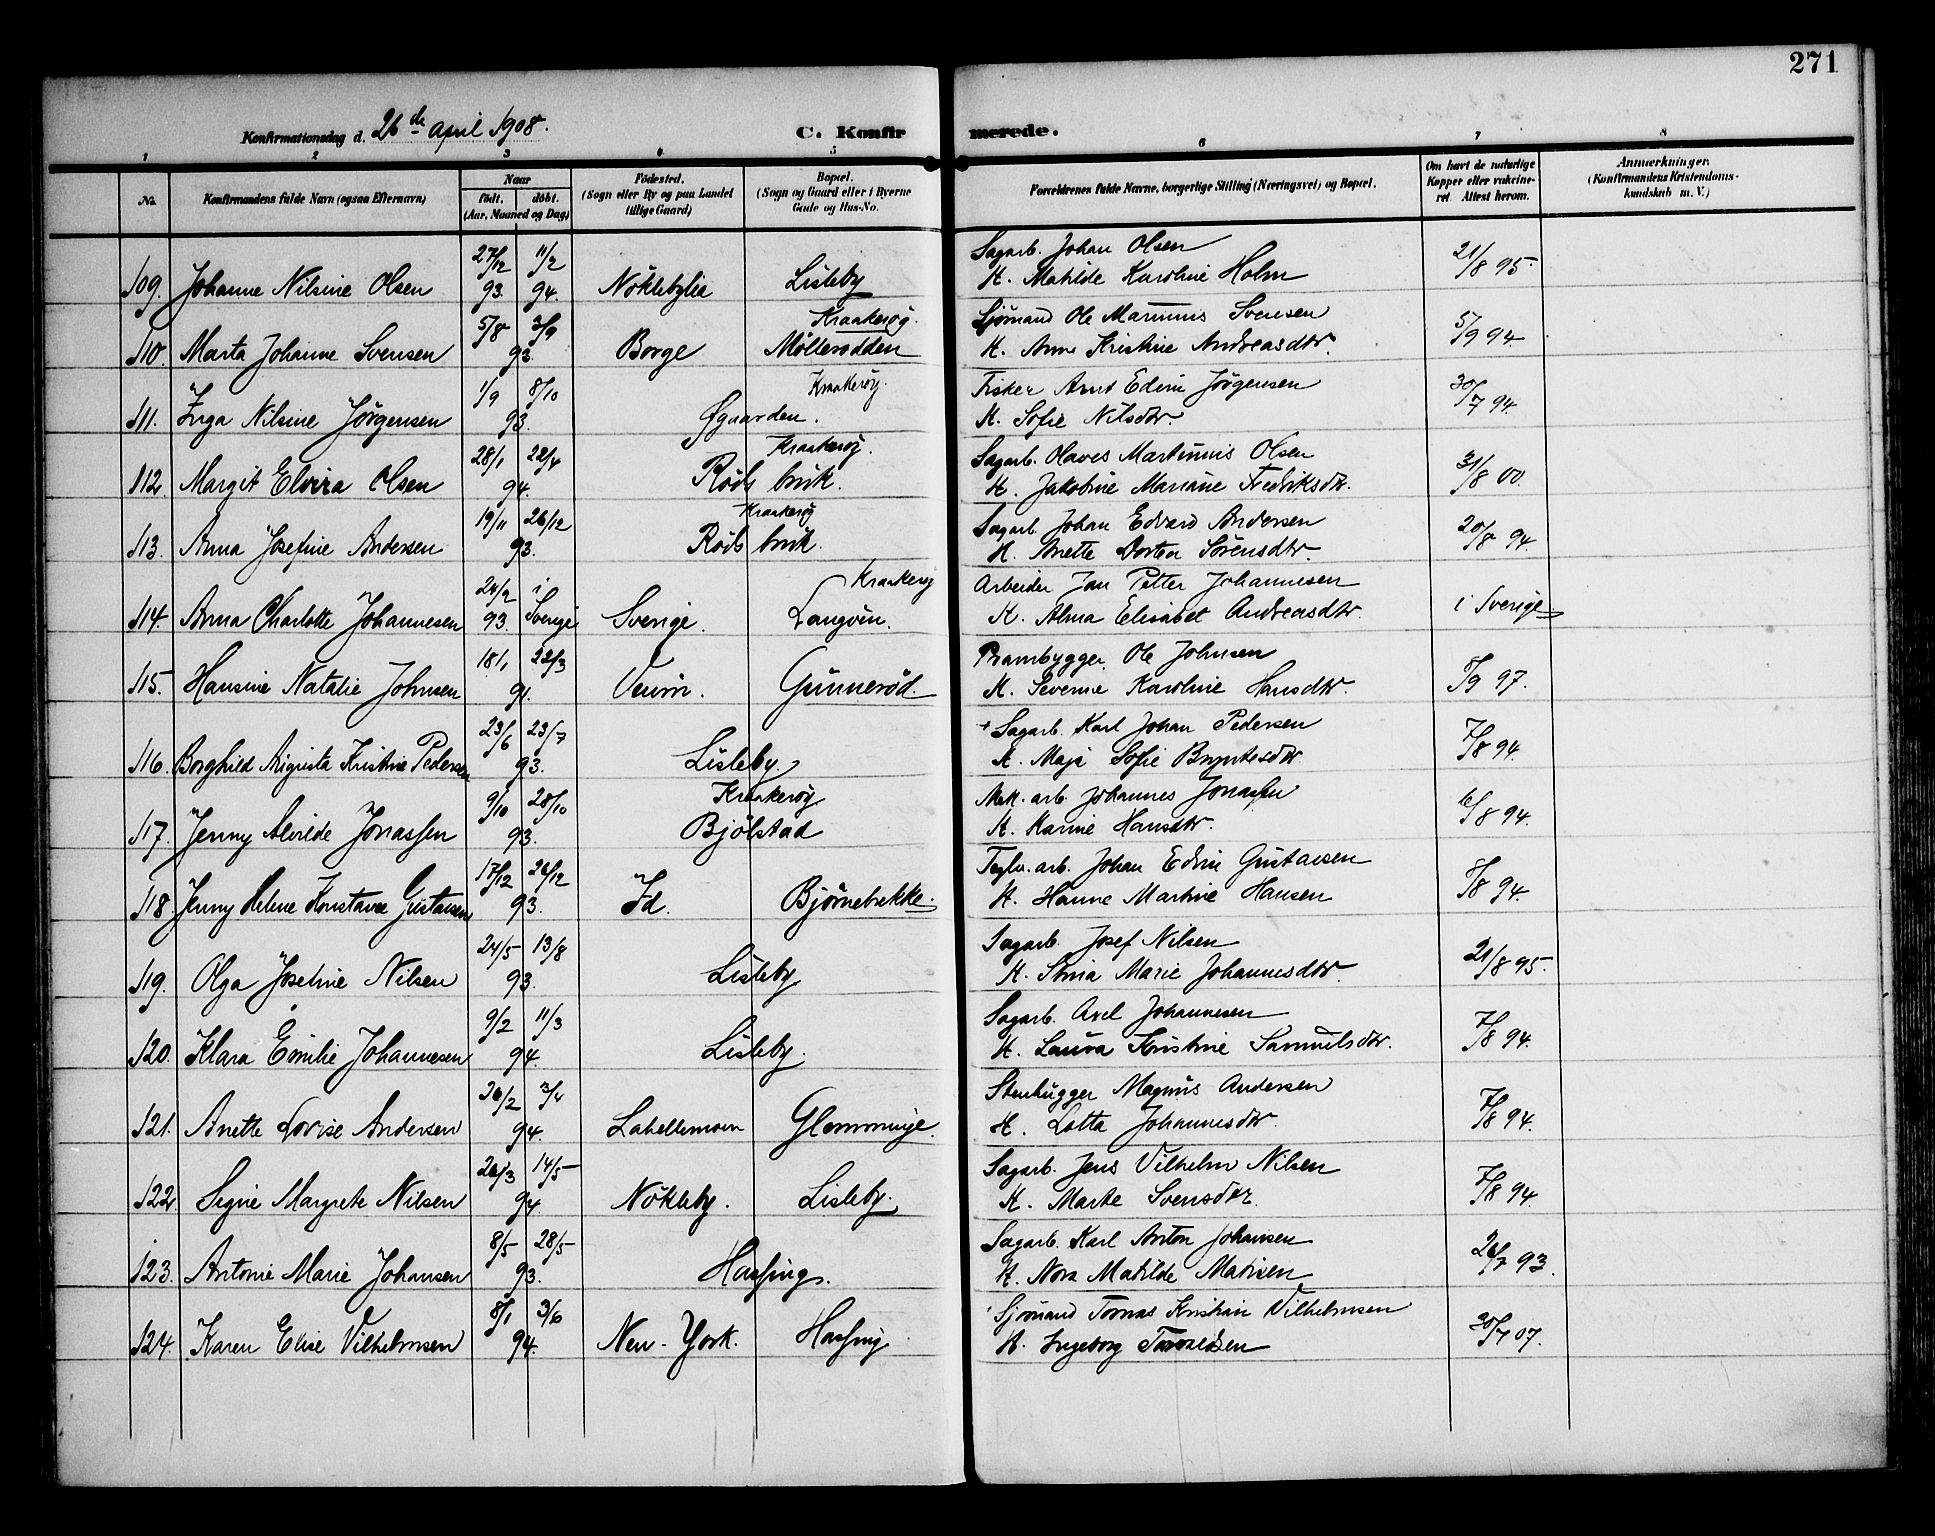 271
Konfirmationsdag d. 26de april 1908.
C. Konfirmerede.
1 2 3 4 5 6 7 8
No.
Konfirmandens fulde Navn (ogsaa Efternavn)
Naar
født, døbt.
(Aar, Maaned og Dag)
Fødested.
(Sogn eller By og paa Landet
tillige Gaard)
Bopæl.
(Sogn og Gaard eller i Byerne
Gade og Hus-No.
Forældrenes fulde Navne, borgerlige Stilling (Næringsvei) og Bopæl.
Om havt de naturlige
Kopper eller vakcine-
ret. Attest herom.
Anmærkninger.
(Konfirmandens Kristendoms-
kundskab m. V.)
27/12 11/2 Sagarb. Johan Olsen
109. Johanne Nilsine Olsen 93. 94. Nöklebylia Lisleby H. Matilde Karoline Holm 21/8 95.
5/8 3/9 Kraakerøy. Sjömand Ole Marinius Svensen
110. Marta Johanne Svensen 93. Borge Møllerodden H. Anne Kristine Andreasdtr. 5/9 94.
1/9 8/10 Kraakerøy. Fisker Arnt Edvin Jørgensen
111. Inga Nilsine Jørgensen 93. Øgaarden. H. Sofie Nilsdtr. 30/7 94.
28/1 22/4 Kraakerøy. Sagarb. Olaves Martinius Olsen
112. Margit Elvira Olsen 94. Røds bruk. H. Jakobine Mariane Fredriksdtr. 31/8 00.
19/11 26/12 Kraakerøy Sagarb. Johan Edvard Andersen
113. Anna Josefine Andersen 93. Røds bruk. H. Anette Dortea Sørensdtr. 20/8 94.
24/2 i Kraakerøy Arbeider Jan Petter Johannesen
114. Anna Charlotte Johannesen 93. Sverige Sverige. Langøen. H. Alma Elisabet Andreasdtr. i Sverige
18/1 22/3 Prambygger. Ole Johnsen
115. Hansine Natalie Johnsen 91. Gunnerød. H. Severine Karoline Hansdtr. 5/9 97.
23/6 23/7 + Sagarb. Karl Johan Pedersen
116. Borghild Augusta Kristine Pedersen 93. Lisleby H. Maja Sofie Bryntesdtr 7/8 94.
9/10 28/10 Kraakerøy Mek. arb. Johannes Jonassen
117. Jenny Alvilde Jonassen 93. Bjølstad H. Karine Hansdtr. 6/8 94.
17/12 26/12 Teglv. arb. Johan Edvin Gustavsen
118. Jenny Helene Konstance Gustavsen 93. Id. Bjørnebekke. H. Hanne Martine Hansen 8/8 94.
24/5 13/8 Sagarb. Josef Nilsen
119. Olga Josefine Nilsen 93. Lisleby H. Marie Johannesdtr. 21/8 95.
9/2 11/3 Sagarb. Axel Johannesen
120. Klara Emilie Johannesen 94. Lisleby. H. Laura Kristine Samuelsdtr. 7/8 94.
26/2 3/4 Stenhugger Magnus Andersen
121. Anette Lovise Andersen 94. Labellemoen Glemminge. H. Lotta Johannesdtr. 7/8 94.
26/3 14/5 Sagarb. Jens Vilhelm Nilsen
122. Signe Margrete Nilsen 94. Nökleby. Lisleby. H. Marte Svensdtr. 7/8 94.
8/5 28/5 Sagarb. Karl Anton Johansen
123. Antonie Marie Johansen 93. Hassing. H. Nora Matilde Matisen 26/7 93.
8/1 3/6 Sjømand Tomas Kristian Vilhelmsen
124. Karen Elise Vilhelmsen 94. New-York. Hassing H. Ingeborg 30/7 07.